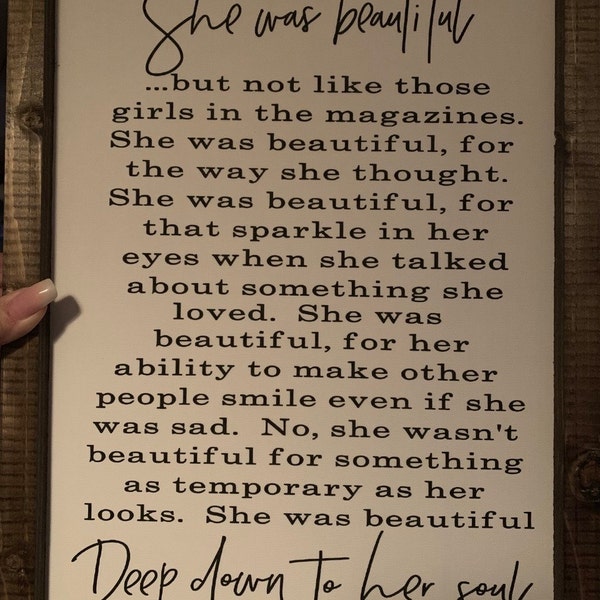 She was beautiful
...but not like those
girls in the magazines.
She was beautiful, for
the way she thought.
She was beautiful, for
that sparkle in her
eyes when she talked
about something she
loved. She was
beautiful, for her
ability to make other
people smile even if she
was sad. No, she wasn't
beautiful for something
as temporary as her
looks. She was beautiful
Deep down to her soul